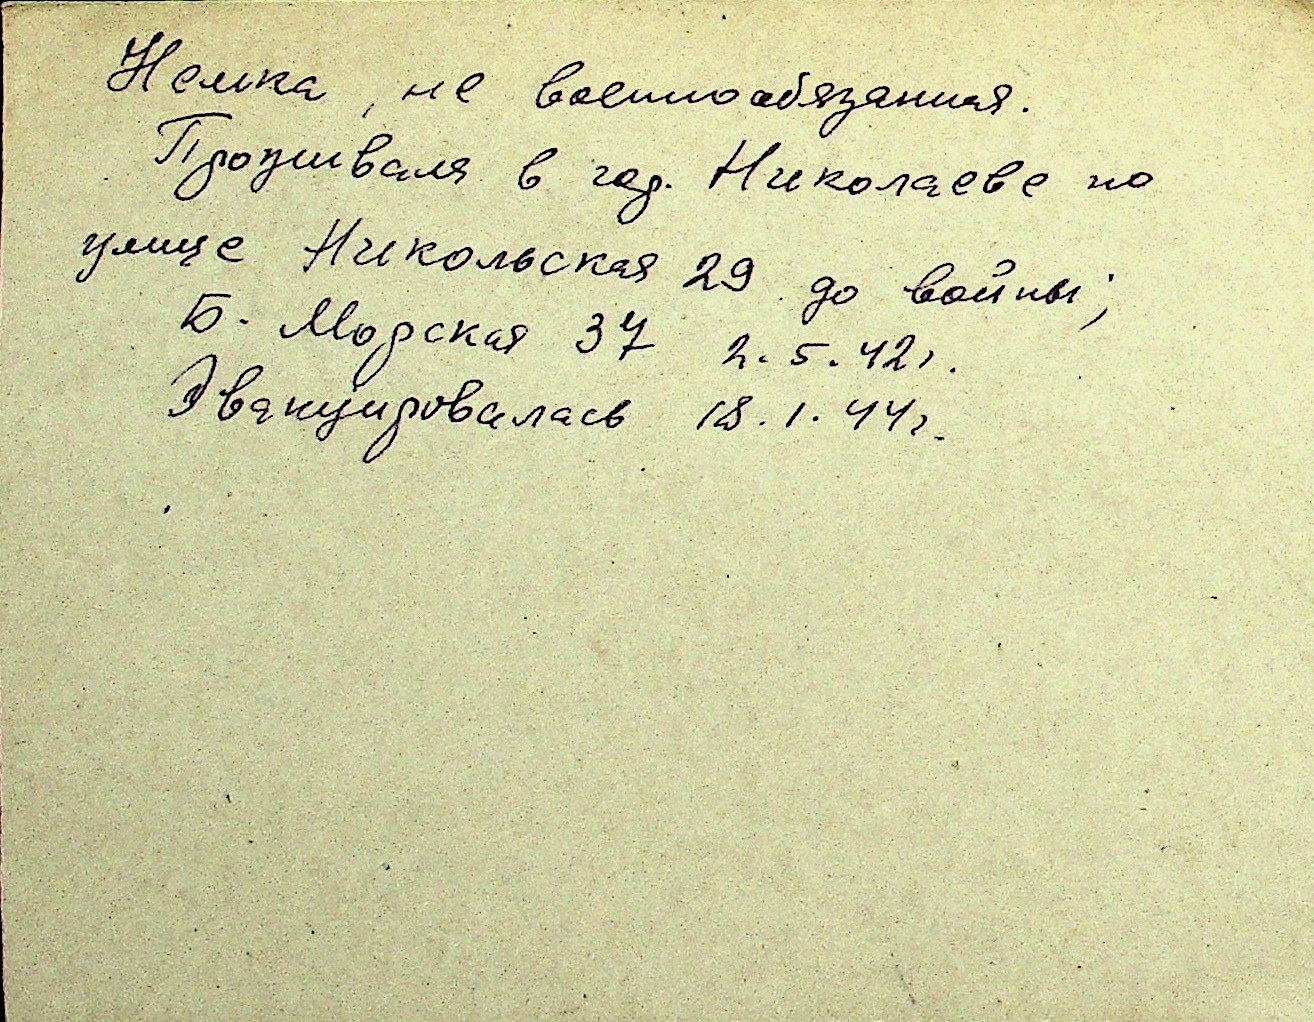 Немка, не военнообязанная.
Проживала в гор. Николаеве по
улице Никольская 29 до войны;
Б. Морская 37 2.5.42г.
Эвакуировалась 18.1.44г.